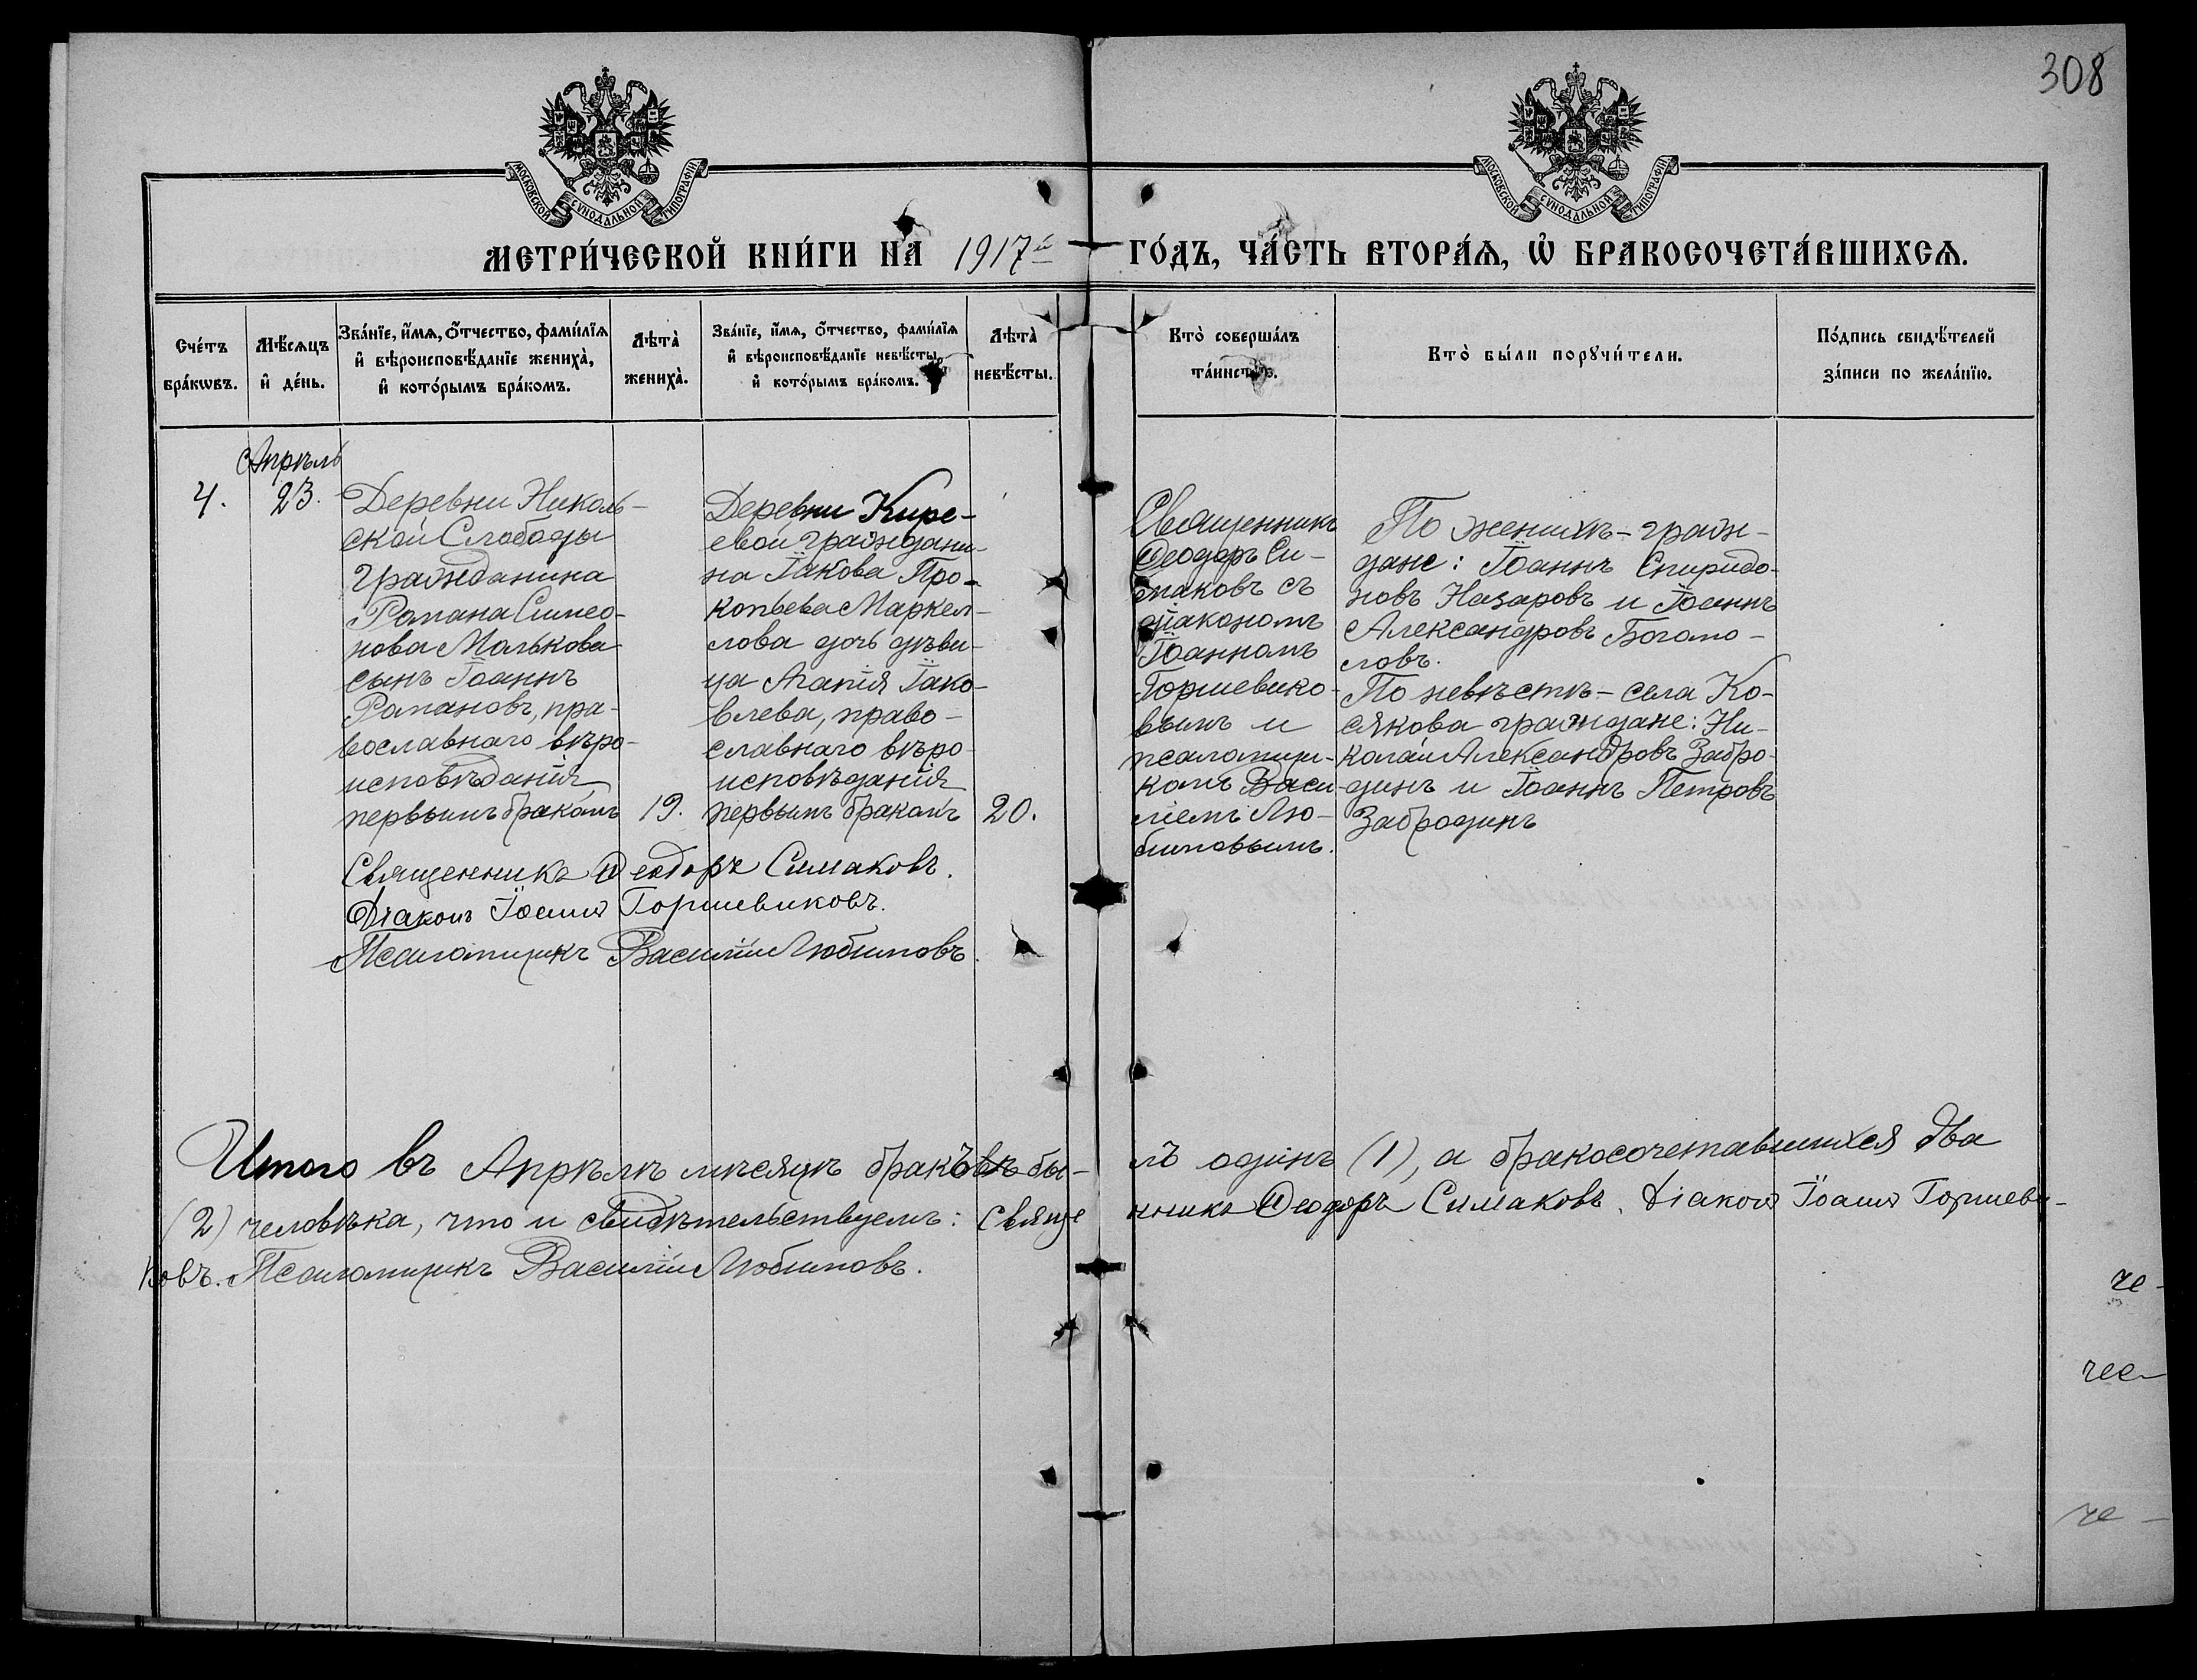 308
МОСКОВСКОЙ СУНОДАЛЬНОЙ ТИПОГРАФІИ
МОСКОВСКОЙ СУНОДАЛЬНОЙ ТИПОГРАФІИ
МЕТРИ́ЧЕСКОЙ КНИ́ГИ НА 1917й ГО́ДЪ, ЧА́СТЬ ВТОРА́Ѧ, Ѽ БРАКОСОЧЕТА́ВШИХСѦ.
Сче́тъ
бра́кѡвъ.
Мѣ́сѧцъ
и҆ де́нь.
Зва́нїе, и҆́мѧ, ѻ҆́тчество, фами́лїѧ
и҆ вѣроисповѣ́данїе жениха̀,
и҆ кото́рымъ бра́комъ.
Лѣта̀
жениха̀.
Зва́нїе, и҆́мѧ, ѻ҆́тчество, фами́лїѧ
и҆ вѣроисповѣ́данїе невѣ́сты,
и҆ кото́рымъ бра́комъ.
Лѣта̀
невѣ́сты.
Кто̀ соверша́лъ
та́инство.
Кто̀ бы́ли порꙋчи́тели.
По́дпись свидѣ́телей
за́писи по жела́нїю.
4.
Апрѣль
23.
Деревни Николь-
ской Слободы
гражданина
Романа Симео-
нова Малькова
сынъ Іоаннъ
Романовъ, пра-
вославнаго вѣро-
исповѣданія
первымъ бракомъ
19.
Деревни Кире-
евой граждани-
на Іакова Про-
копьева Маркел-
лова дочь дѣви-
ца Агапія Іако-
влева, право-
славнаго вѣро-
исповѣданія
первымъ бракомъ
20.
Священникъ
Ѳеодоръ Си-
маковъ съ
діакономъ
Іоанномъ
Горшевико-
вымъ и
псаломщи-
комъ Васи-
ліемъ Лю-
бимовымъ.
По женихѣ - граж-
дане: Іоаннъ Спиридо-
новъ Назаровъ и Іоаннъ
Александровъ Богомо-
ловъ.
По невѣстѣ - села Ко-
сякова граждане: Ни-
колай Александровъ Забро-
динъ и Іоаннъ Петровъ
Забродинъ
Священникъ Ѳеодоръ Симаковъ.
Діаконъ Іоаннъ Горшевиковъ.
Псаломщикъ Василій Любимовъ.
Итого въ Апрѣлѣ мѣсяцѣ браковъ бы-лъ одинъ (1), а бракосочетавшихся два
(2) человѣка, что и свидѣтельствуемъ: Священникъ Ѳеодоръ Симаковъ. Діаконъ Іоаннъ Горшеви-
ковъ. Псаломщикъ Василій Любимовъ.
че-
че-